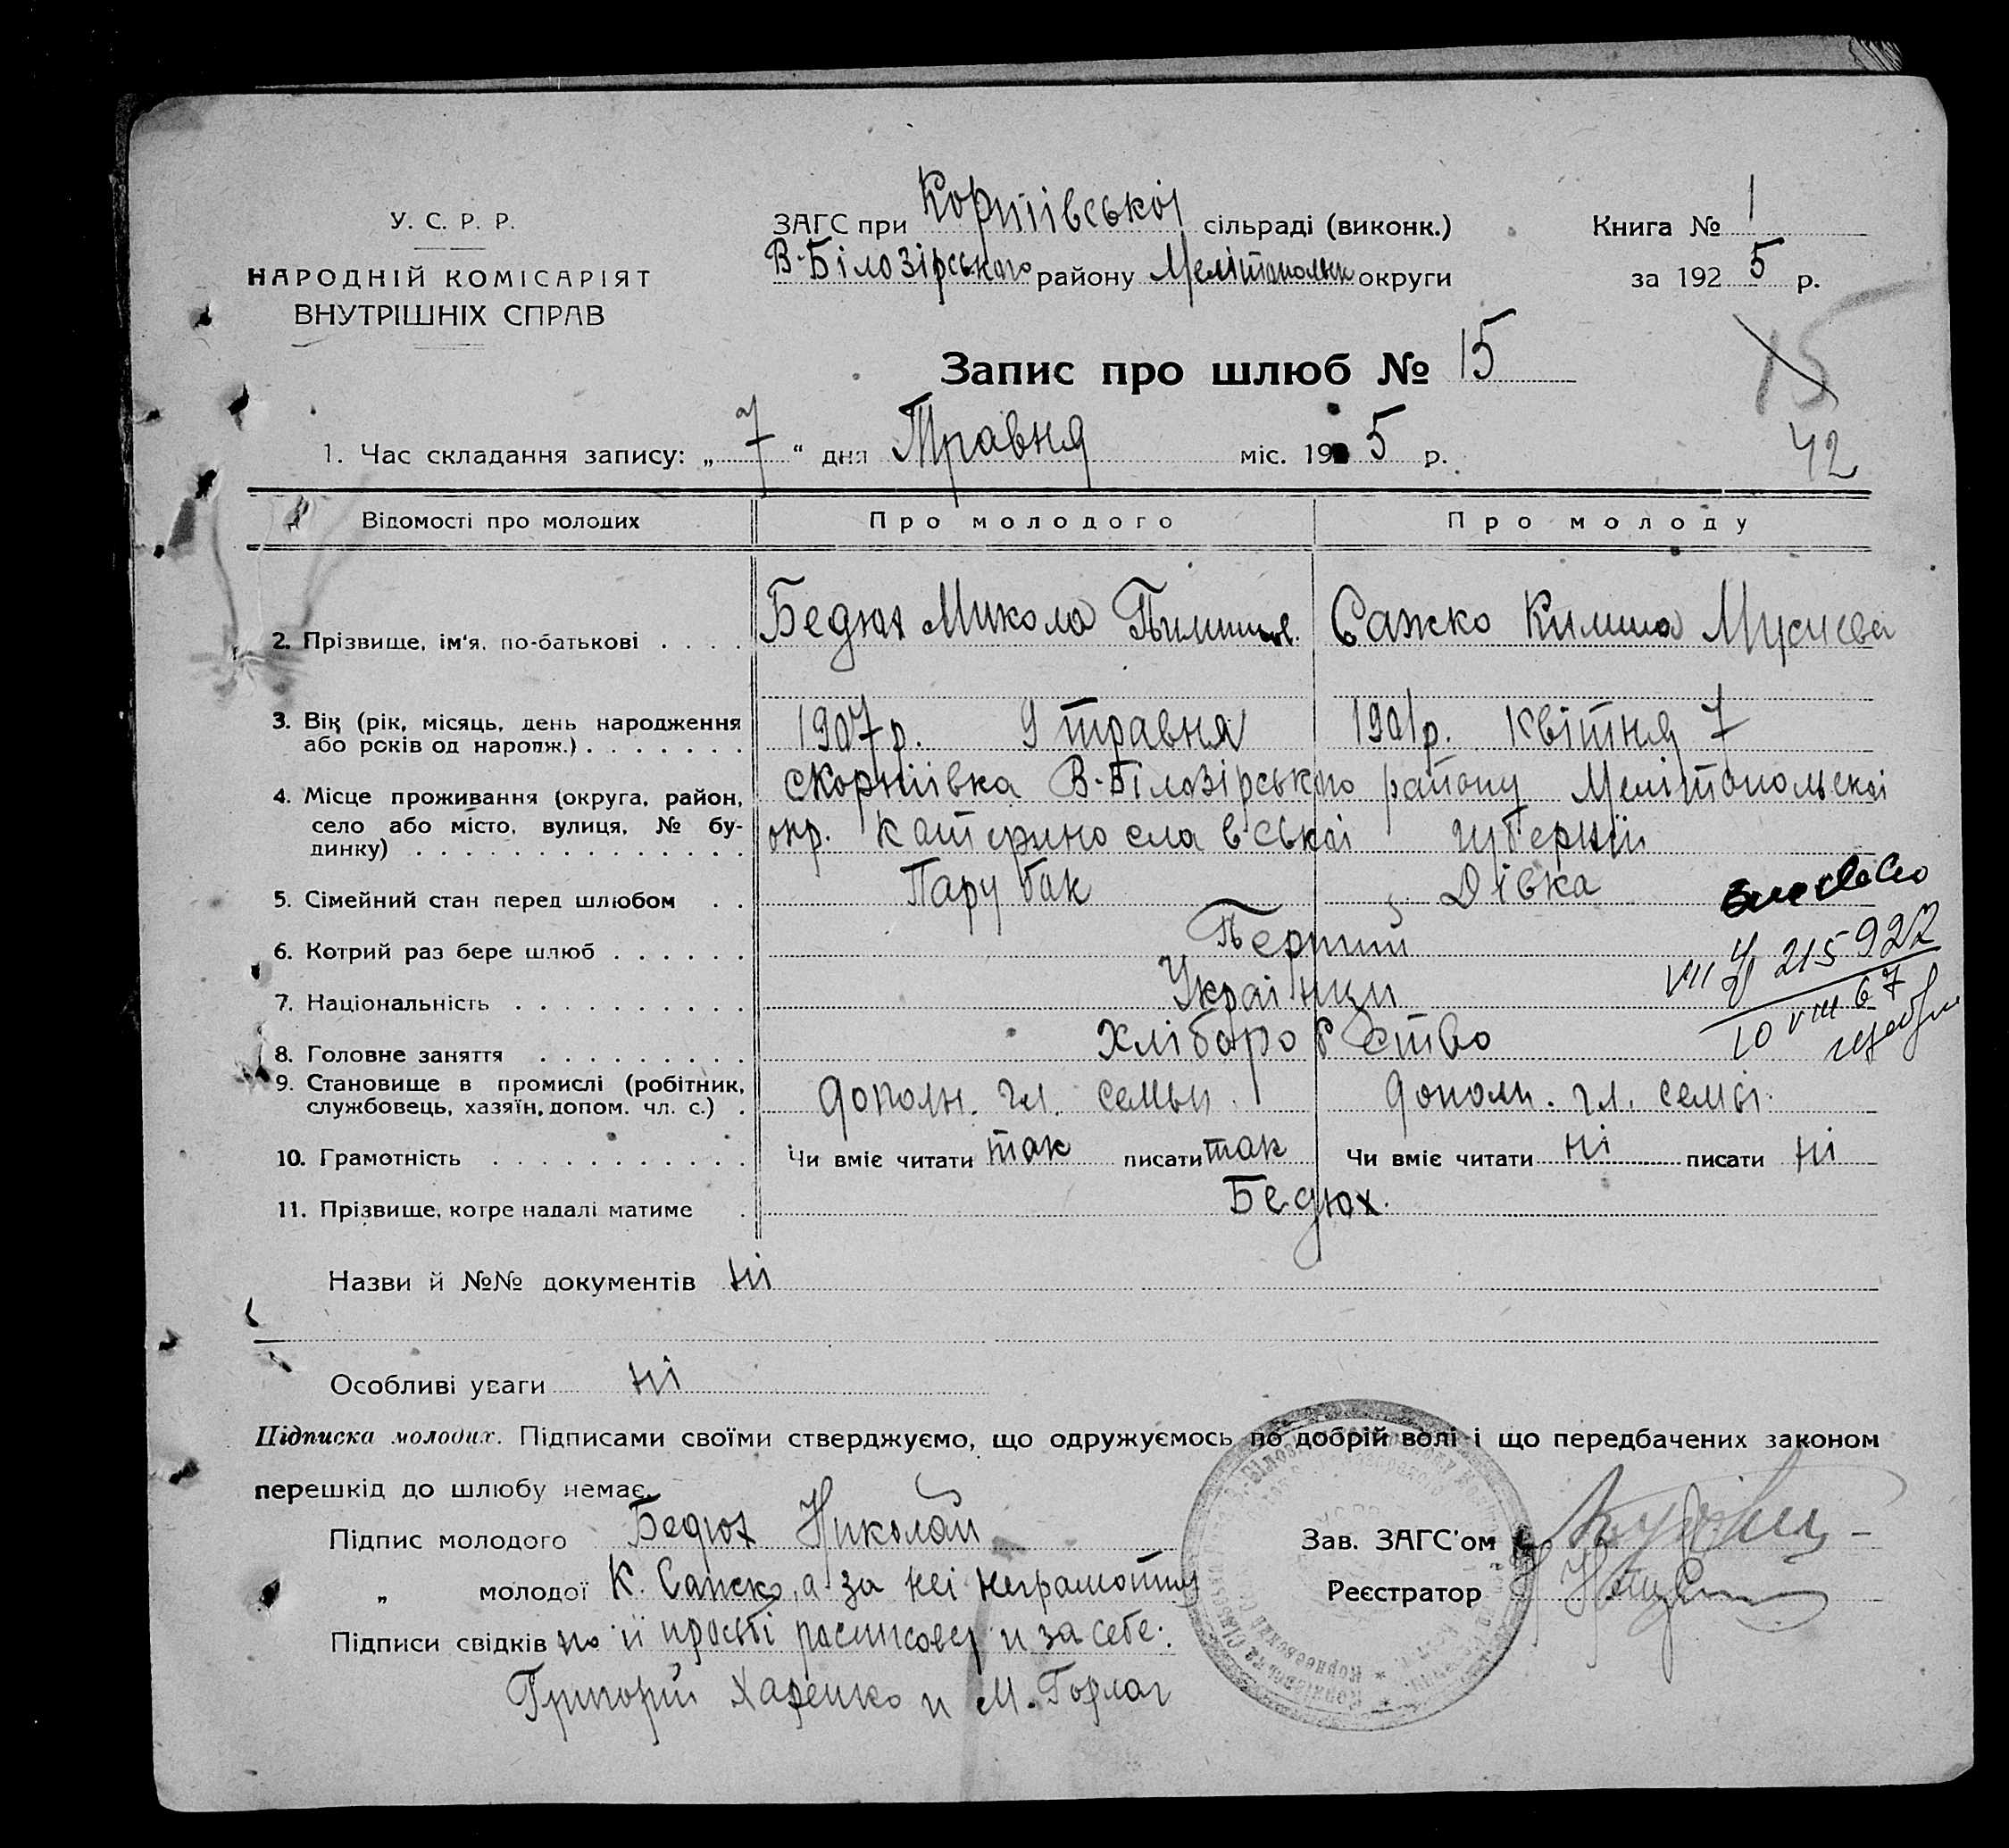 У. С. Р. Р.
НАРОДНІЙ КОМІСАРІЯТ
ВНУТРІШНІХ СПРАВ
ЗАГС при Корніівськоі сільраді (виконк.)
В-Білозірського району Мелітопольськ округи
Книга № 1
за 1925 р.
Запис про шлюб № 15
15
42
1. Час складання запису: „ 7 “ дня Травня міс. 1925 р.
Відомості про молодих Про молодого Про молоду
2. Прізвище, ім'я, по-батькові . . . . Бедюх Микола Пилипов. Сапско Килина Мусиєва
3. Вік (рік, місяць, день народження 1907р. 9 травня 1901р. Квітня 7
або років од народж.) . . . . . . .
4. Місце проживання (округа, район, с Корніівка В-Білозірського району Мелітопольскоі
село або місто, вулиця, № бу- окр. Катеринославськоі губерніи
динку) . . . . . . . . . . . . . .
5. Сімейний стан перед шлюбом . . Парубак Дівка
6. Котрий раз бере шлюб . . . . . . Перший
7. Національність . . . . . . . . . . Українци
8. Головне заняття . . . . . . . . . Хліборобство
9. Становище в промислі (робітник, дополн. гл. семьи. дополн. гл. семьі.
службовець, хазяїн, допом. чл. с.) .
10. Грамотність . . . . . . . . . . . Чи вміє читати так писати так Чи вміє читати ні писати ні
11. Прізвище, котре надалі матиме . Бедюх.
VIII 215927
10 VIII 67
Назви й №№ документів ні
Особливі уваги ні
Підписка молодих. Підписами своїми стверджуємо, що одружуємось по добрій волі і що передбачених законом
перешкід до шлюбу немає.
Підпис молодого Бедюх Николай
Зав. ЗАГС'ом
„ молодої К. Сапско, а за неі неграмотну
Реєстратор
Підписи свідків по іі просьбі росписовся и за себе:
Григорій Харенко и М. Горлач